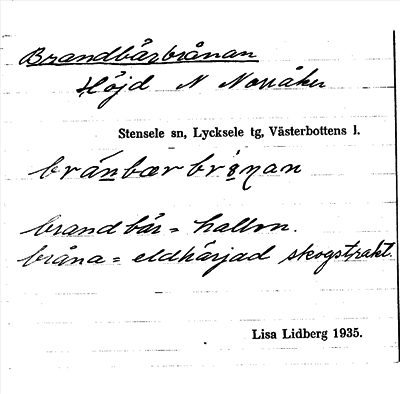 Brandbärbrånan
Höjd N Norråker
Stensele sn, Lycksele tg, Västerbottens l.
brandbär = hallon.
bråna = eldhärjad skogstrakt.
Lisa Lidberg 1935.